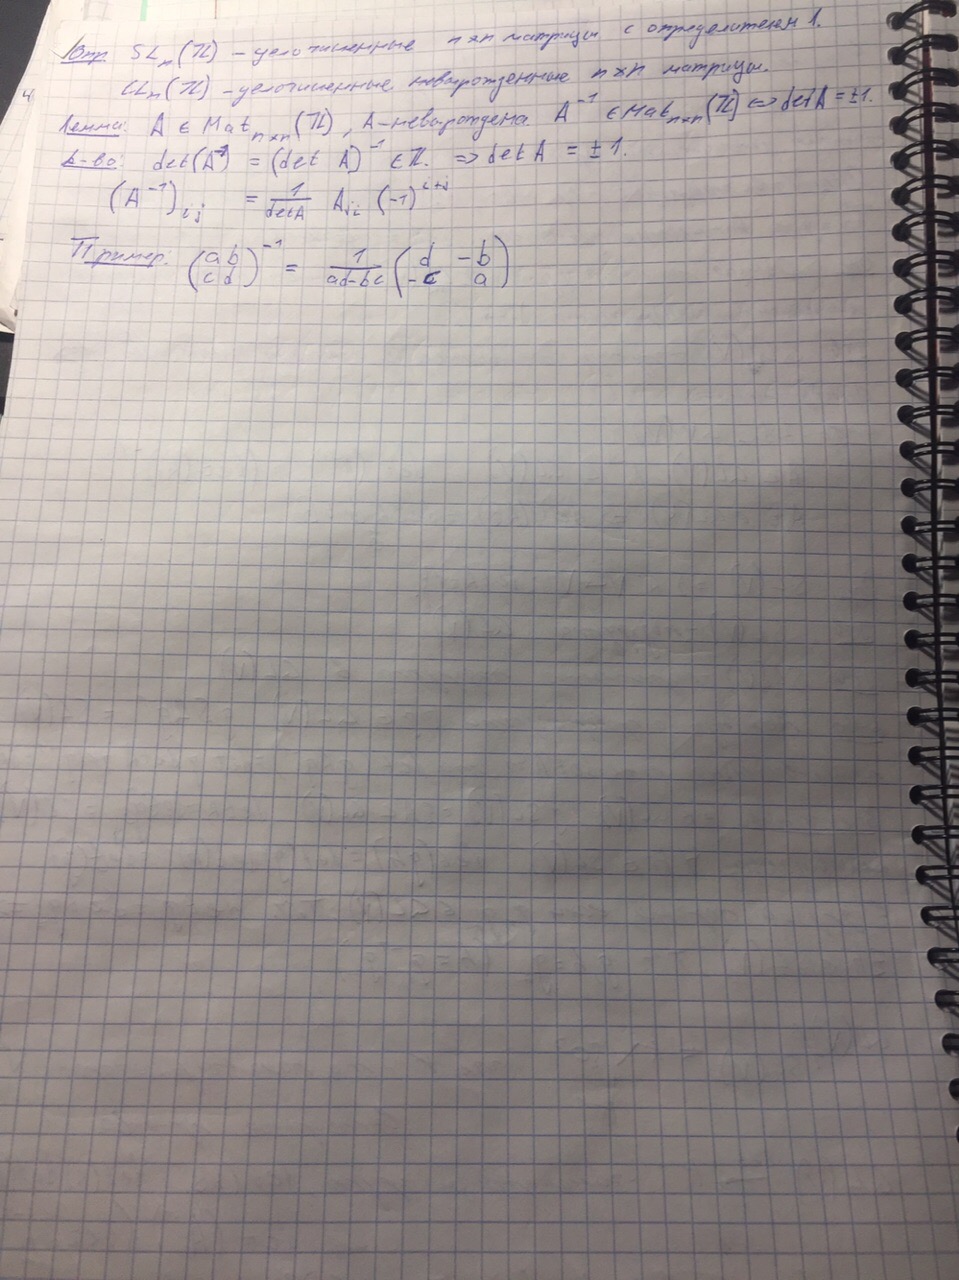 Опр SLₙ(ℤ) – целочисленные n×n матрицы с определителем 1.
GLₙ(ℤ) – целочисленные невырожденные n×n матрицы.
Лемма: A ∈ Matₙₓₙ(ℤ), A – невырождена. A⁻¹ ∈ Matₙₓₙ(ℤ) ⇔ det A = ±1.
Д-во: det(A⁻¹) = (det A)⁻¹ ∈ ℤ. ⇒ det A = ±1.
(A⁻¹)ᵢⱼ = 1/detA Aⱼᵢ (-1)ⁱ⁺ʲ
Пример: (a b; c d)⁻¹ = 1/(ad-bc) (d -b; -c a)